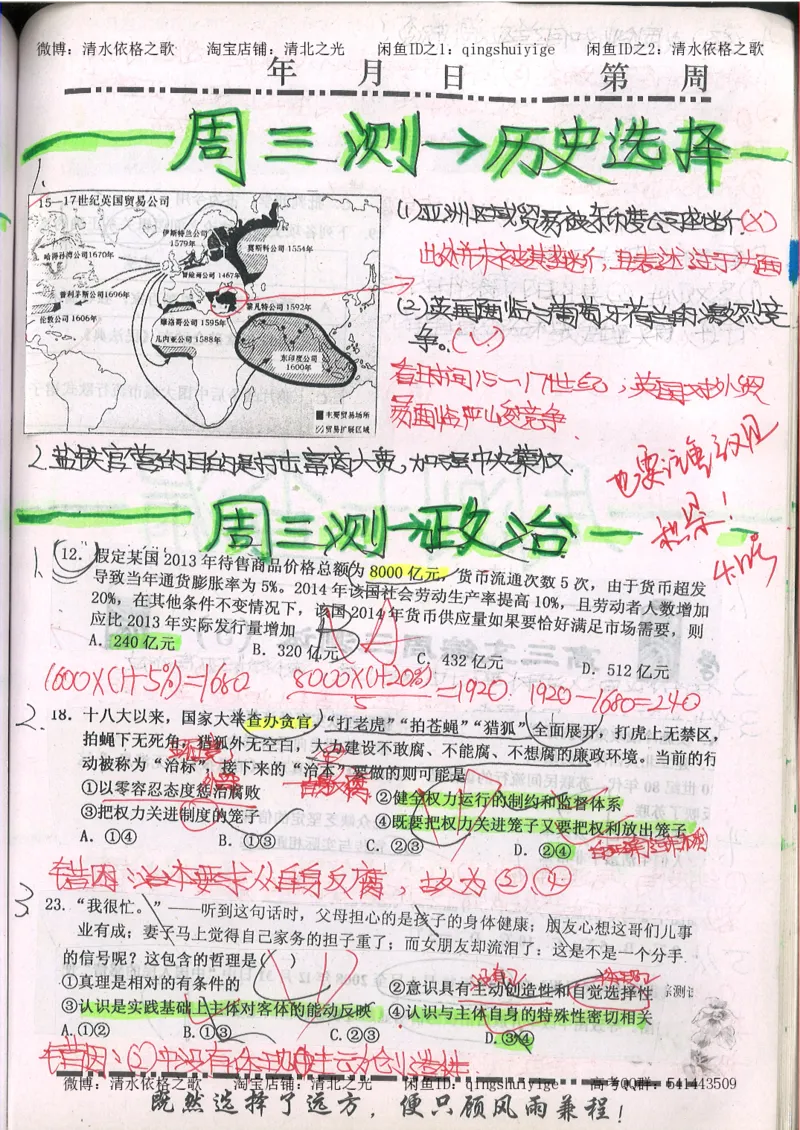 微博：清水依格之歌 淘宝店铺：清北之光 闲鱼ID之1：qingshuiyige 闲鱼ID之2：清水依格之歌
年 月 日 第 周
周三测→历史选择
1.
15—17世纪英国贸易公司
伊斯特兰公司
1579年
莫斯科公司 1554年
哈得孙湾公司1670年
冒险商公司 1467年
普利茅斯公司1696年
黎凡特公司 1592年
伦敦公司 1606年
维洛哥公司 1595年
几内亚公司 1588年
东印度公司
1600年
主要贸易场所
贸易扩展区域
(1)亚洲区域贸易被东印度公司垄断(×)
此处并未被其垄断，且表述过于片面
(2)英国面临六葡萄牙荷兰的激烈竞
争。(√)
看时间15—17世纪；英国对外贸
易面临严峻竞争
2.盐铁官营的目的是打击富商大贾，加强中央集权.
也要注意
积累！
周三测→政治
1. 12. 假定某国 2013 年待售商品价格总额为 8000 亿元，货币流通次数 5 次，由于货币超发
导致当年通货膨胀率为 5%。2014 年该国社会劳动生产率提高 10%，且劳动者人数增加
20%，在其他条件不变情况下，该国 2014 年货币供应量如果要恰好满足市场需要，则
应比 2013 年实际发行量增加
A. 240 亿元 B. 320 亿元 C. 432 亿元 D. 512 亿元
1600×(1+5%)=1680 8000×(1+20%)/5=1920. 1920-1680=240
2. 18. 十八大以来，国家大举查办贪官，“打老虎”“拍苍蝇”“猎狐”全面展开，打虎上无禁区，
拍蝇下无死角，猎狐外无空白，大力建设不敢腐、不能腐、不想腐的廉政环境。当前的行
动被称为“治标”，接下来的“治本”要做的则可能是
①以零容忍态度惩治腐败 ②健全权力运行的制约和监督体系
③把权力关进制度的笼子 ④既要把权力关进笼子又要把权利放出笼子
A. ①④ B. ①③ C. ②③ D. ②④
错因：治本要求从自身反腐，故为②④
3. 23. “我很忙。”——听到这句话时，父母担心的是孩子的身体健康；朋友心想这哥们儿事
业有成；妻子马上觉得自己家务的担子重了；而女朋友却流泪了：这是不是一个分手
的信号呢？这包含的哲理是( )
①真理是相对的有条件的 ②意识具有生动创造性和自觉选择性
③认识是实践基础上主体对客体的能动反映 ④认识与主体自身的特殊性密切相关
A. ①② B. ①③ C. ②③ D. ③④
错因：②中没有体现生动创造性
微博：清水依格之歌 淘宝店铺：清北之光 闲鱼ID之1：qingshuiyige 高考QQ群：641443509
既然选择了远方，便只顾风雨兼程！